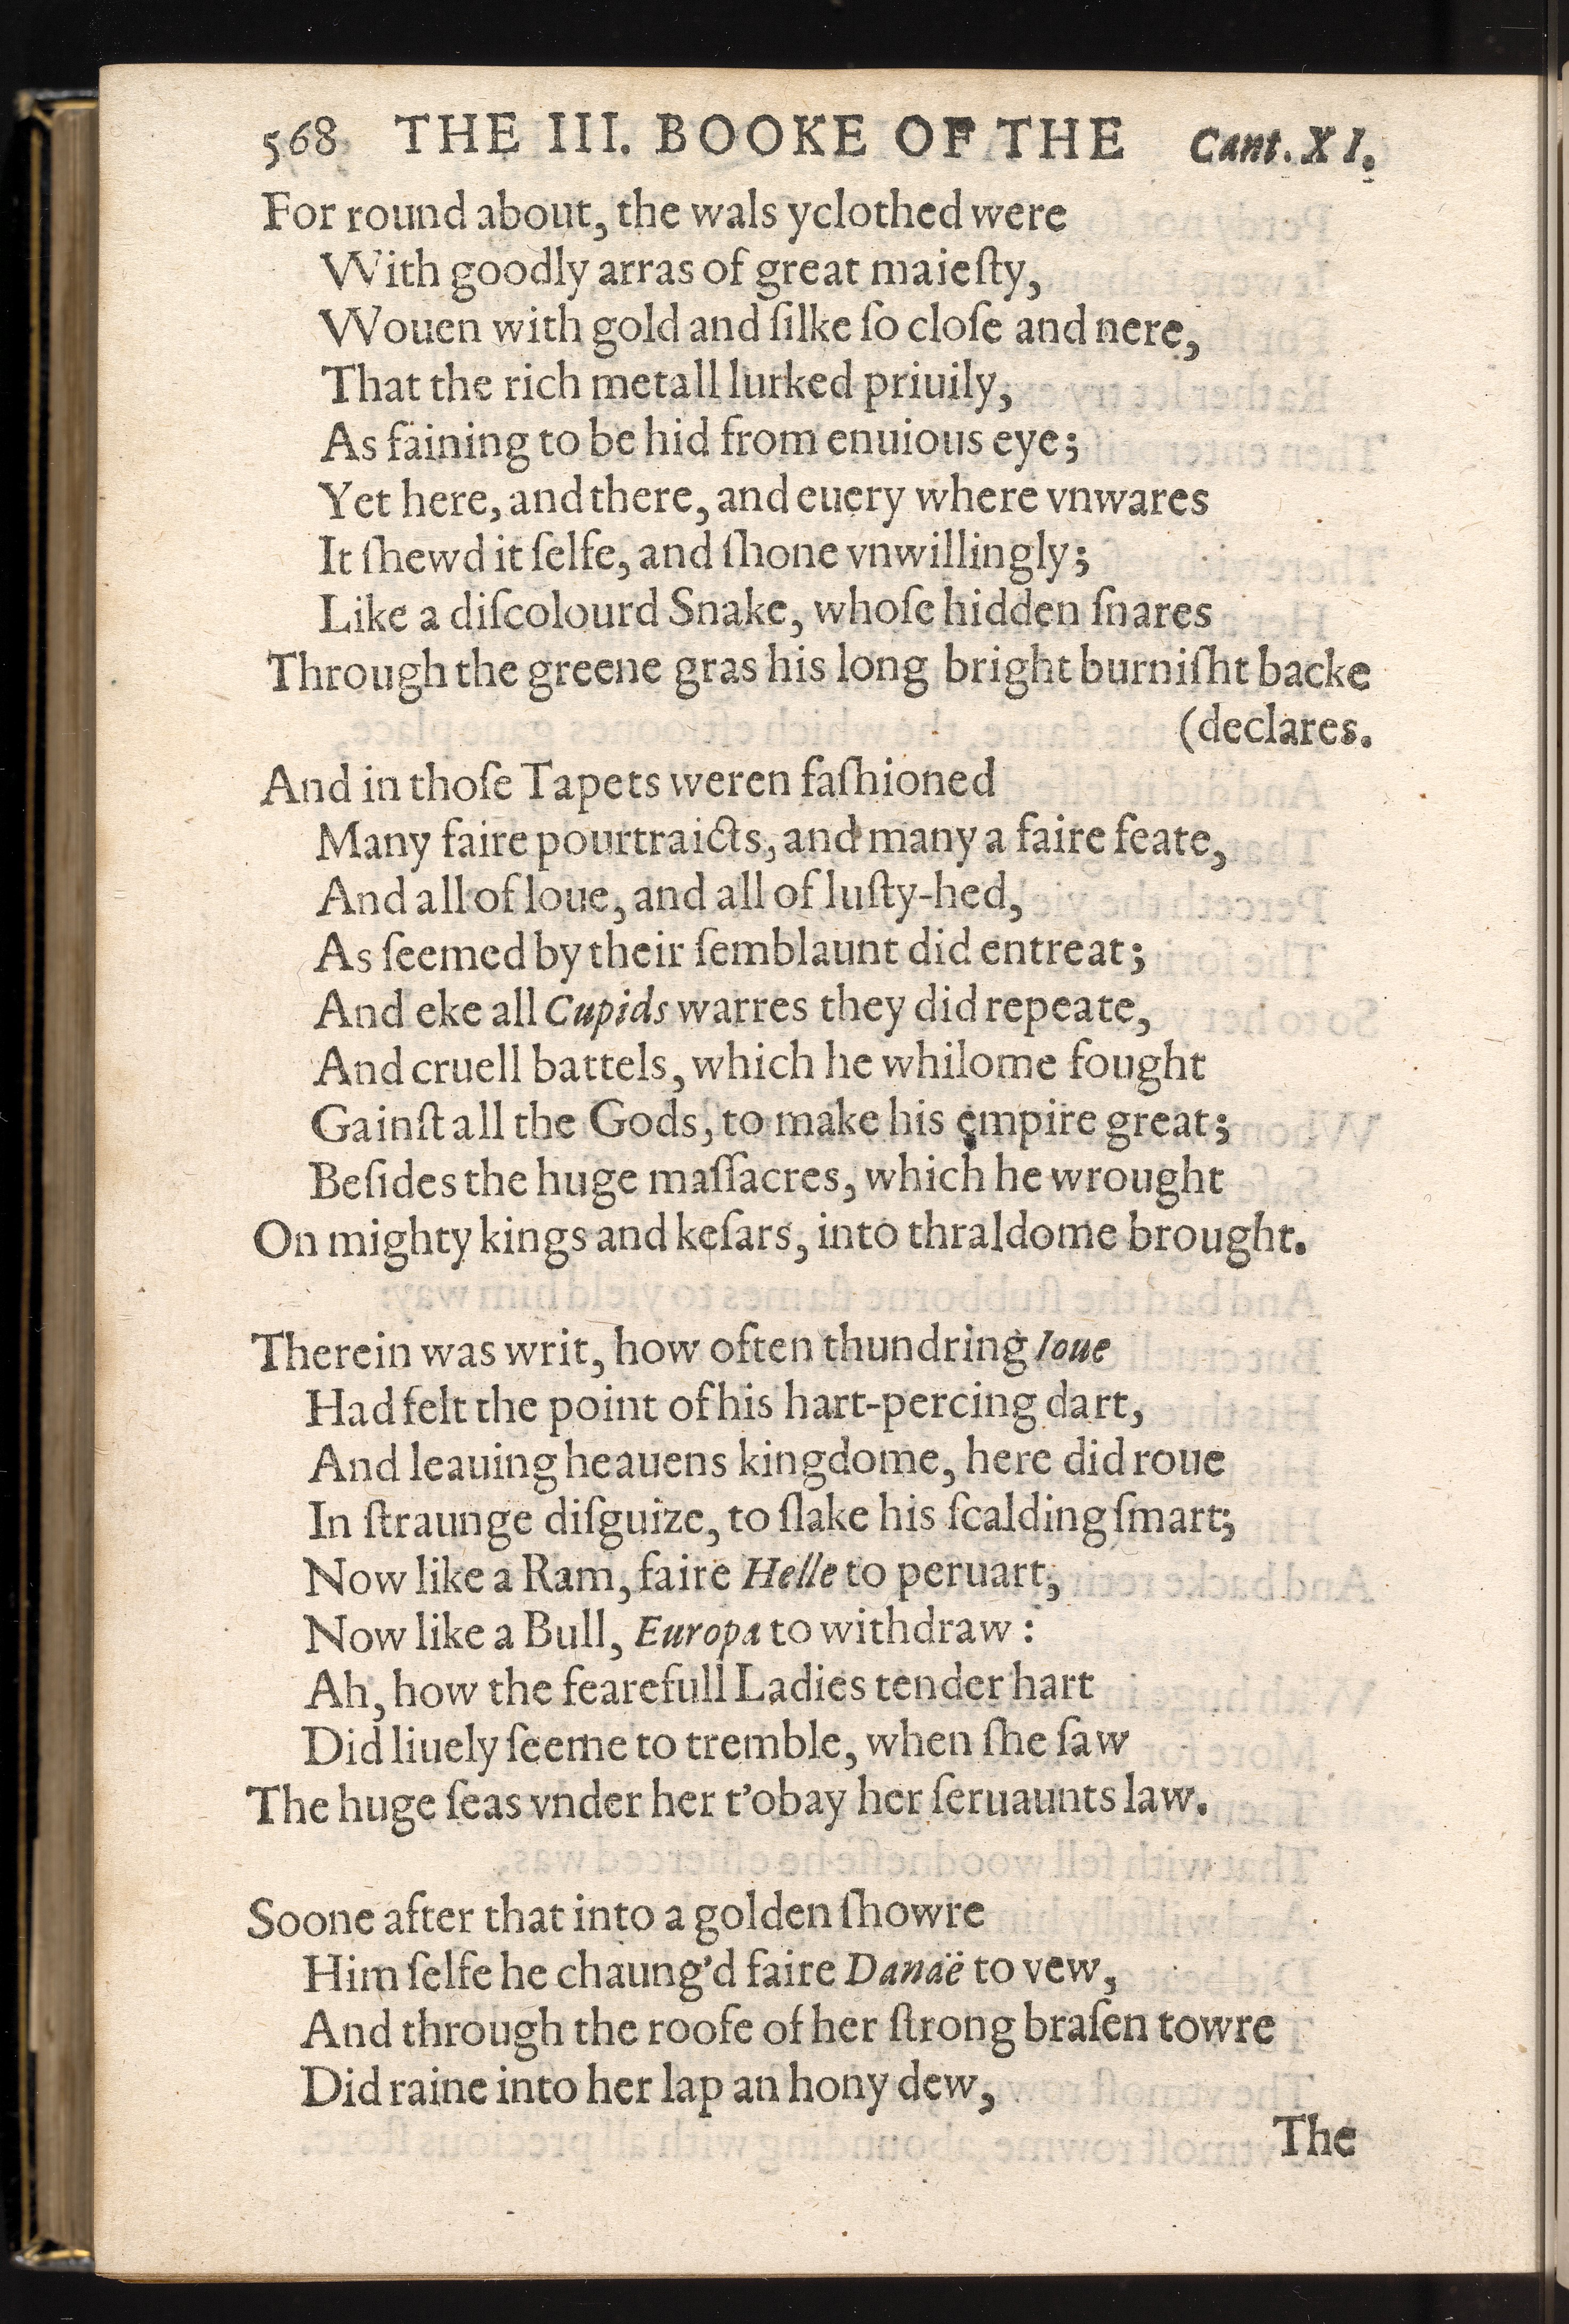 568 THE III. BOOKE OF THE Cant. XI.
For round about, the wals yclothed were
With goodly arras of great maieſty,
Wouen with gold and ſilke ſo cloſe and nere,
That the rich metall lurked priuily,
As faining to be hid from enuious eye;
Yet here, and there, and euery where vnwares
It ſhewd it ſelfe, and ſhone vnwillingly;
Like a diſcolourd Snake, whoſe hidden ſnares
Through the greene gras his long bright burniſht backe
(declares.
And in thoſe Tapets weren faſhioned
Many faire pourtraicts, and many a faire feate,
And all of loue, and all of luſty-hed,
As ſeemed by their ſemblaunt did entreat;
And eke all Cupids warres they did repeate,
And cruell battels, which he whilome fought
Gainſt all the Gods, to make his empire great;
Beſides the huge maſſacres, which he wrought
On mighty kings and keſars, into thraldome brought.
Therein was writ, how often thundring Ioue
Had felt the point of his hart-percing dart,
And leauing heauens kingdome, here did roue
In ſtraunge diſguize, to ſlake his ſcalding ſmart;
Now like a Ram, faire Helle to peruart,
Now like a Bull, Europa to withdraw:
Ah, how the fearefull Ladies tender hart
Did liuely ſeeme to tremble, when ſhe ſaw
The huge ſeas vnder her t'obay her ſeruaunts law.
Soone after that into a golden ſhowre
Him ſelfe he chaung'd faire Danaë to vew,
And through the roofe of her ſtrong braſen towre
Did raine into her lap an hony dew,
The